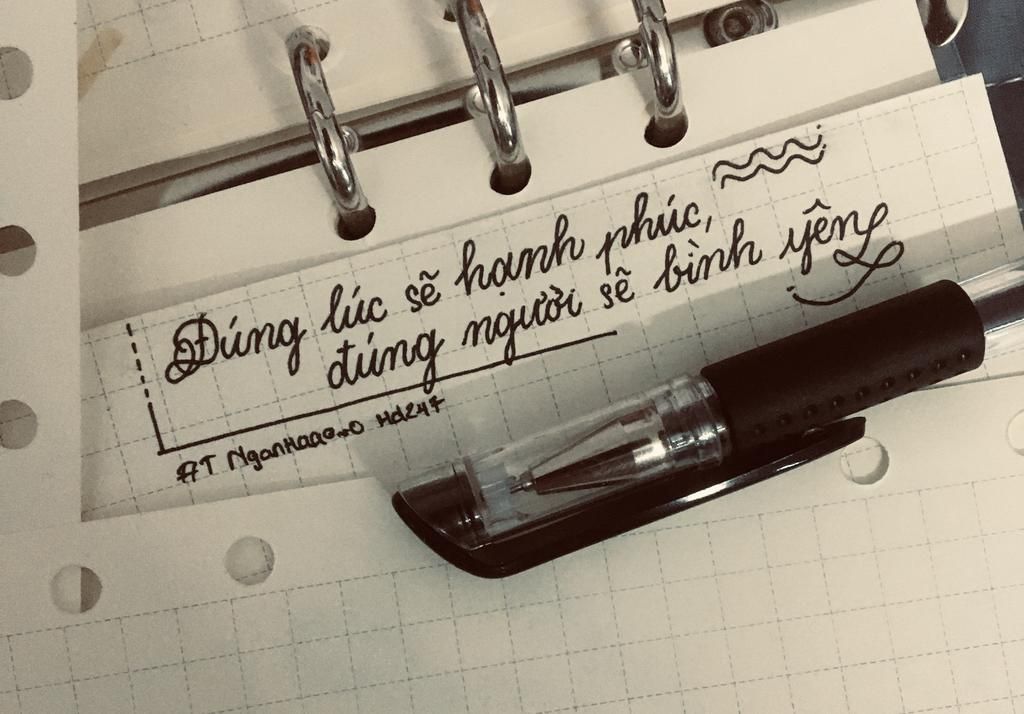 Đúng lúc sẽ hạnh phúc,
đúng người sẽ bình yên
AT Hd247